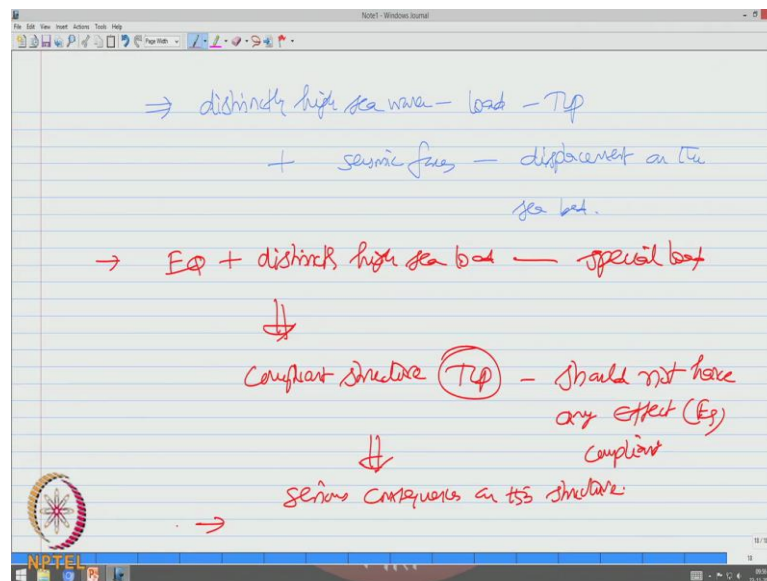 Note1 - Windows Journal
File Edit View Insert Actions Tools Help
Page Width
⇒ distinctly high sea waves - load - TLP
+ seismic forces - displacement on the
sea bed.
→ EQ + distinctly high sea load — special load
⇓
Compliant structure (TLP) - should not have
any effect (EQ)
compliant
⇓
serious consequences on this structure.
→
NPTEL
18